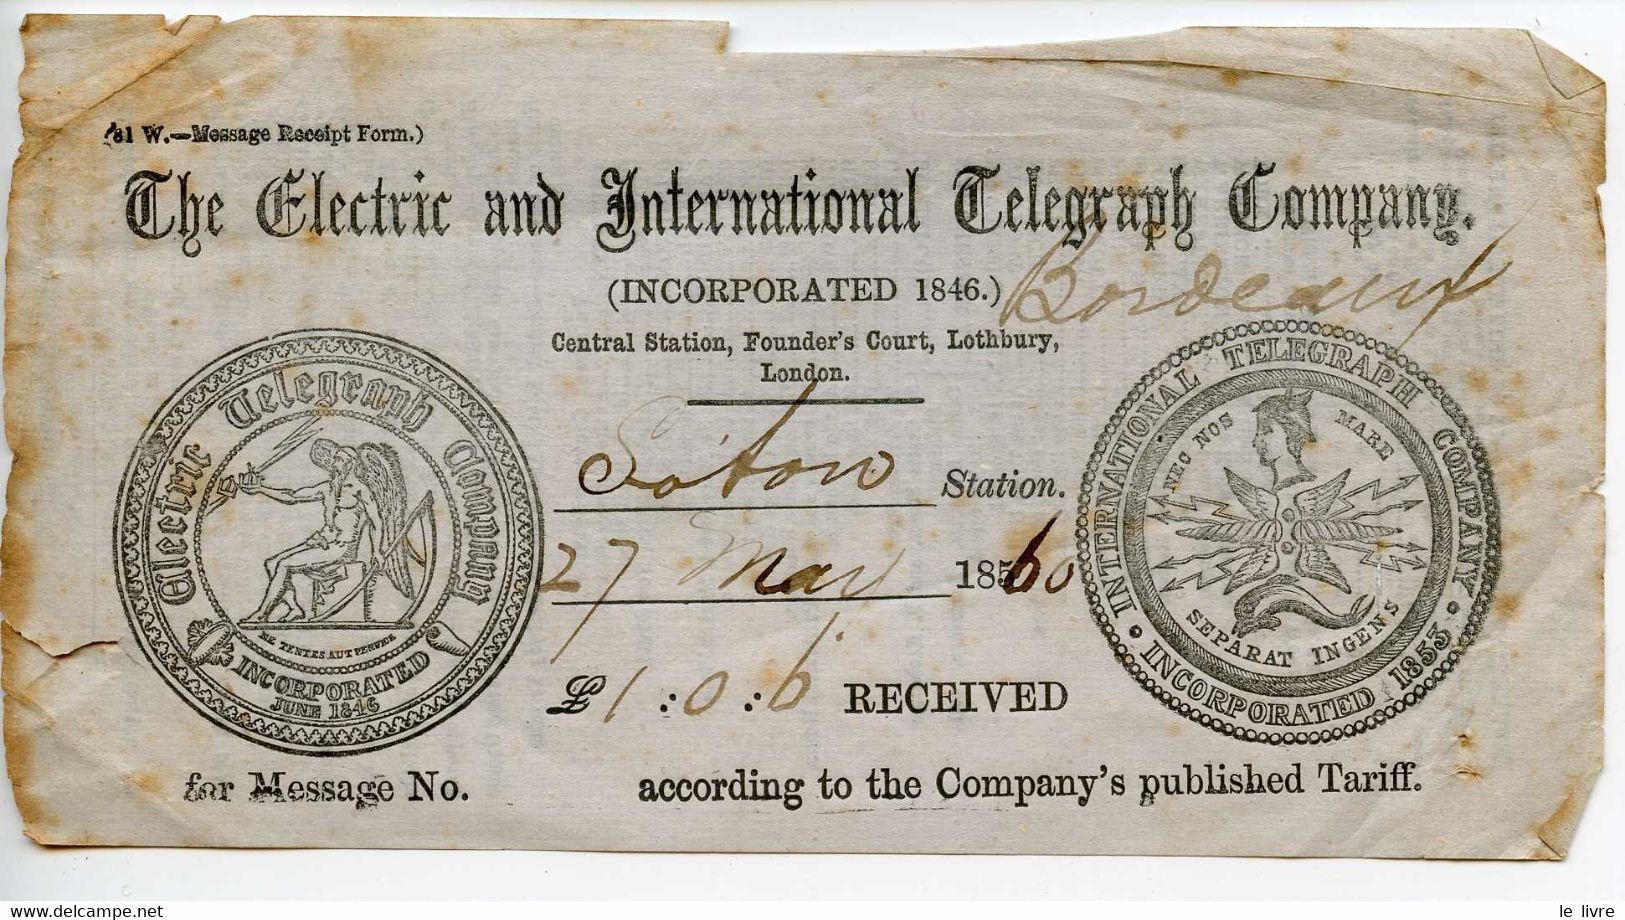 (81 W.—Message Receipt Form.)
The Electric and International Telegraph Company.
(INCORPORATED 1846.) Bordeaux
Central Station, Founder's Court, Lothbury,
London.
Electric Telegraph Company
INCORPORATED
JUNE 1846
So'ton Station.
27 May 1860
£1:0:6 RECEIVED
INTERNATIONAL TELEGRAPH COMPANY
INCORPORATED 1853
NEC NOS MARE
SEPARAT INGENS
for Message No. according to the Company's published Tariff.
le livre